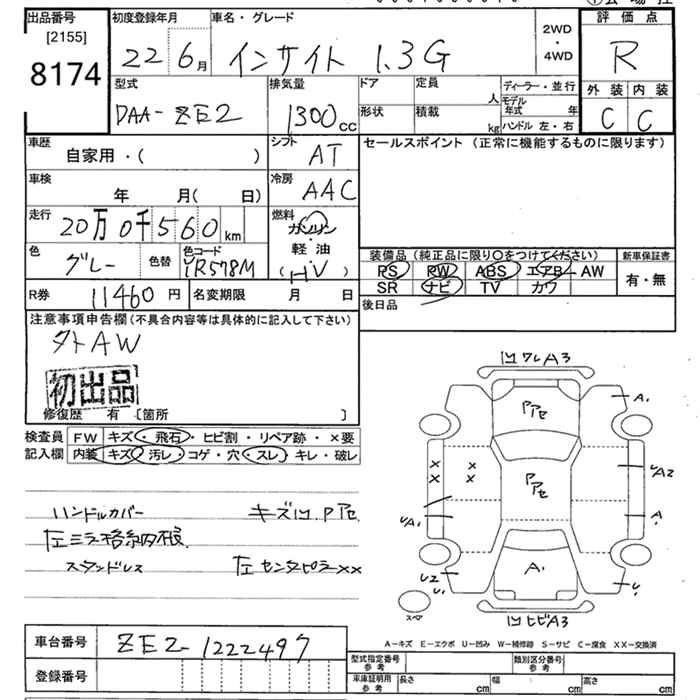 出品番号 初度登録年月 車名・グレード 2WD・4WD 評価点
[2155]
8174
22 6月 インサイト 1.3G R
型式 排気量 ドア 定員 人 ディーラー・並行 外装 内装
DAA-ZE2 1300cc 形状 積載 kg モデル年式 年 ハンドル 左・右 C C
車歴 自家用・( ) シフト AT セールスポイント (正常に機能するものに限ります)
車検 年 月( 日) 冷房 AAC
走行 20万0千560km 燃料 ガソリン・軽油 (HV)
色 グレー 色替 色コード YR578M
装備品 (純正品に限り○をつけてください) 新車保証書
PS PW ABS エアB AW 有・無
SR ナビ TV カワ
R券 11460円 名変期限 月 日 後日品
注意事項申告欄(不具合内容等は具体的に記入して下さい)
外AW
初出品
修復歴 有 [箇所 ]
検査員記入欄 FW キズ・飛石・ヒビ割・リペア跡・×要
内装 キズ・汚レ・コゲ・穴・スレ・キレ・破レ
ハンドルカバー キズ凹 Pアセ
左ミラ格納不良
スタッドレス 左センタピラ××
凹ワレA3
Pアセ A1
Pアセ ×× ×× UA2
UA1 A1
U2 U1 A1 U1
スペア 凹ヒビA3
A-キズ E-エクボ U-凹み W-補修跡 S-サビ C-腐食 XX-交換済
車台番号 ZE2-1222497
型式指定番号 参考 類別区分番号 参考
登録番号 車庫証明用 参考 長さ cm 幅 cm 高さ cm